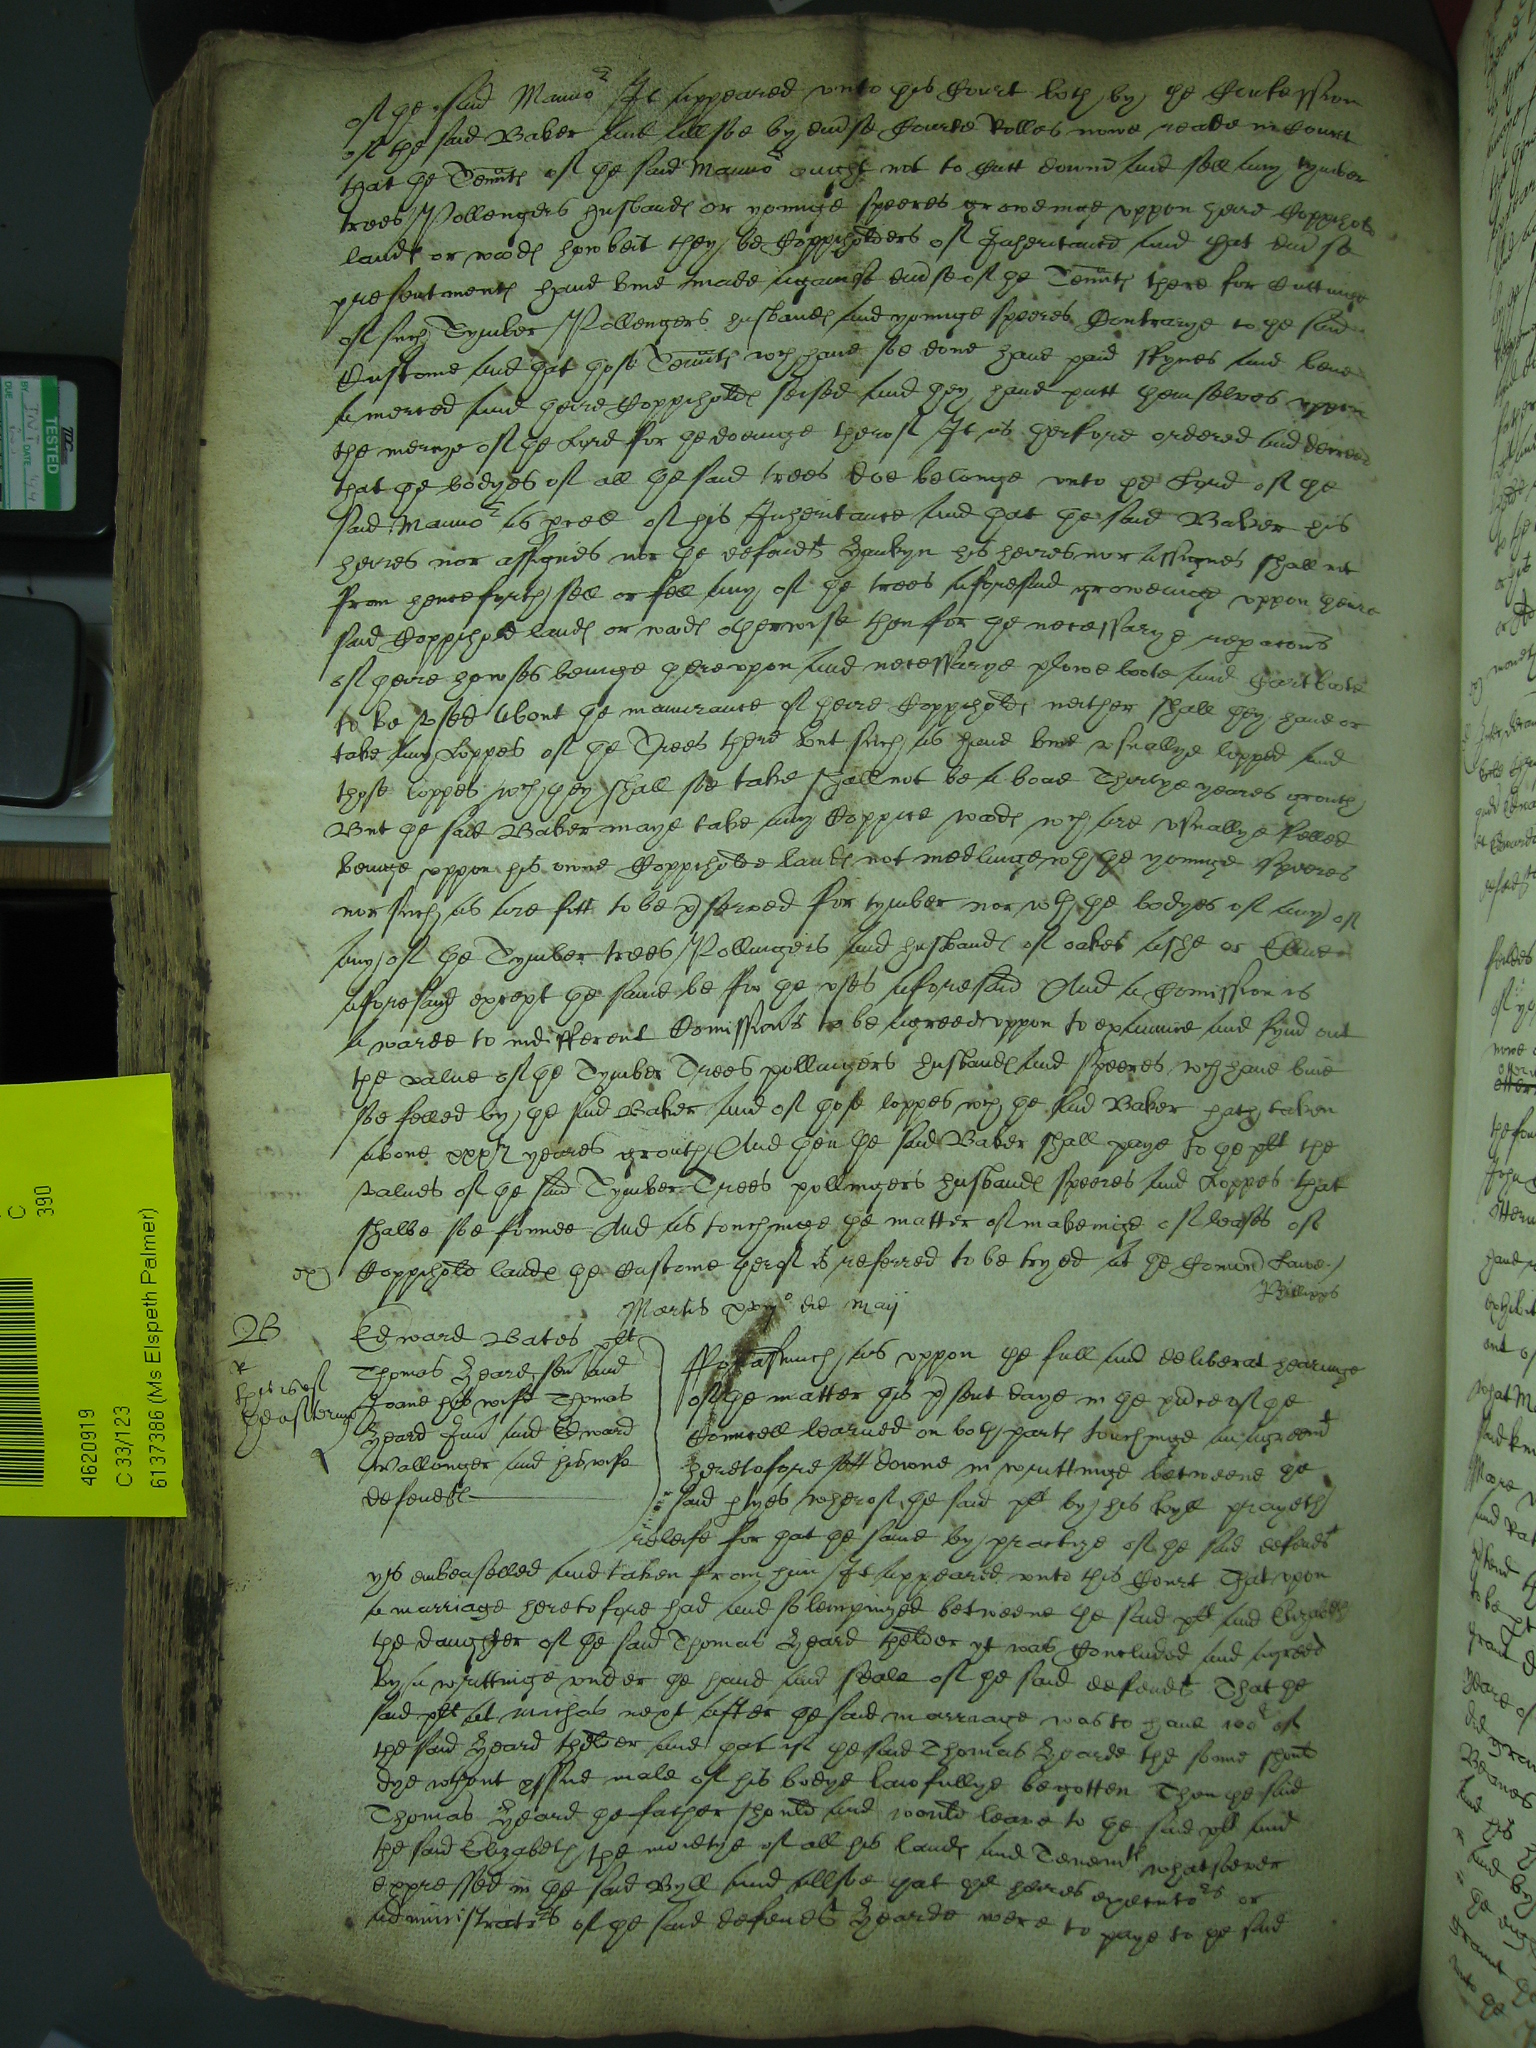 of the said Mannor It appeared unto this Court both by the Confession
of the said Baker and allsoe by diverse Courte Rolles nowe reade in Court
that the Tennts of the said Mannor ought not to Cutt downe and sell any tymber
trees Pollengers husbands or younge speeres groweinge uppon theire Coppihold
lands or woods howbeit they be Coppiholders of Inheritance and that diverse
presentments have bine made against diverse of the Tennts there for Cuttinge
of such Tymber Pollengers husbands and younge speeres Contrarye to the said
Custome and that those Tennts wch have soe done have paid ffynes and bene
amerced and theire Coppiholds seised and they have putt themselves uppon
the mercye of the Lord for the doeinge therof It is therfore ordered and decreed
that the bodyes of all the said trees doe belonge unto the Lord of the
said Mannor as pcell of his Inheritance and that the said Baker his
heires nor assignes nor the defendt his heires nor assignes shall not
from henceforth sell or fell any of the trees aforesaid groweinge uppon theire
said Coppihold lands or woods otherwise then for the necessarye repacons
of theire howses beinge thereupon and necessarye plowe boote and Cart boote
to be used about the manurance of theire Coppiholds neither shall they have or
take any Loppes of the Trees there but such as have bine usuallye lopped and
those loppes wch they shall soe take shall not be above Thirtye yeares grouth
But the said Baker maye take any Coppice woods wch are usuallye felled
beinge uppon his owne Coppihold lands not medlinge wth the younge speeres
nor such as are fitt to be pserved for tymber nor wth the bodyes of any of
any of the Tymber trees Pollingers and husbands of oakes ashe or Elme
aforesaid except the same be for the uses aforesaid And a Comission is
awarded to indifferent Comissionrs to be agreed uppon to examine and fynd out
the value of the Tymber Trees pollingers husbands and speeres wch have bine
soe felled by the said Baker and of those loppes wch the said Baker hath taken
above xxxty yeares grouth And then the said Baker shall paye to the plt the
values of the said Tymber Trees pollingers husbands speeres and Loppes that
shalbe soe founde And as touchinge the matter of makeinge of leases of
Coppihold lands the Custome therof is referred to be tryed at the Comon Lawe
Phillipps
Martis xxvjo die Maij
B
Edward Bates plt
Thomas Yeard sen and
Joane his wife Thomas
Yeard Jun and Edward
Wallonger and his wife
defendts
Forasmuch as uppon the full and deliberat hearinge
of the matter this psent daye in the psence of the
Councell learned on both parts touchinge an agreemt
heretofore sett downe in writtinge betweene the
said ptyes wherof the said plt by his byll prayeth
releife for that the same by practize of the said defendt
ys embeaselled and taken from him It appeared unto this Court That upon
a marriage heretofore had and solempnized betweene the said plt and Elizabeth
the daughter of the said Thomas Yeard thelder yt was Concluded and agreed
by a writtinge under the hand and seale of the said defendt That the
said plt at Michas next after the said marriage was to have 100l of
the said Yeard thelder and that if the said Thomas Yearde the sonne should
dye wthout yssue male of his bodye lawfullye begotten Then the said
Thomas Yeard the father should and would leave to the said plt and
the said Elizabeth the moietye of all his lands and Tenemts whatsoever
expressed in the said Byll and allsoe that the heires executors or
administrators of the said defendt Yearde were to paye to the said
TESTED
C
390
4620919
C 33/123
6137386 (Ms Elspeth Palmer)